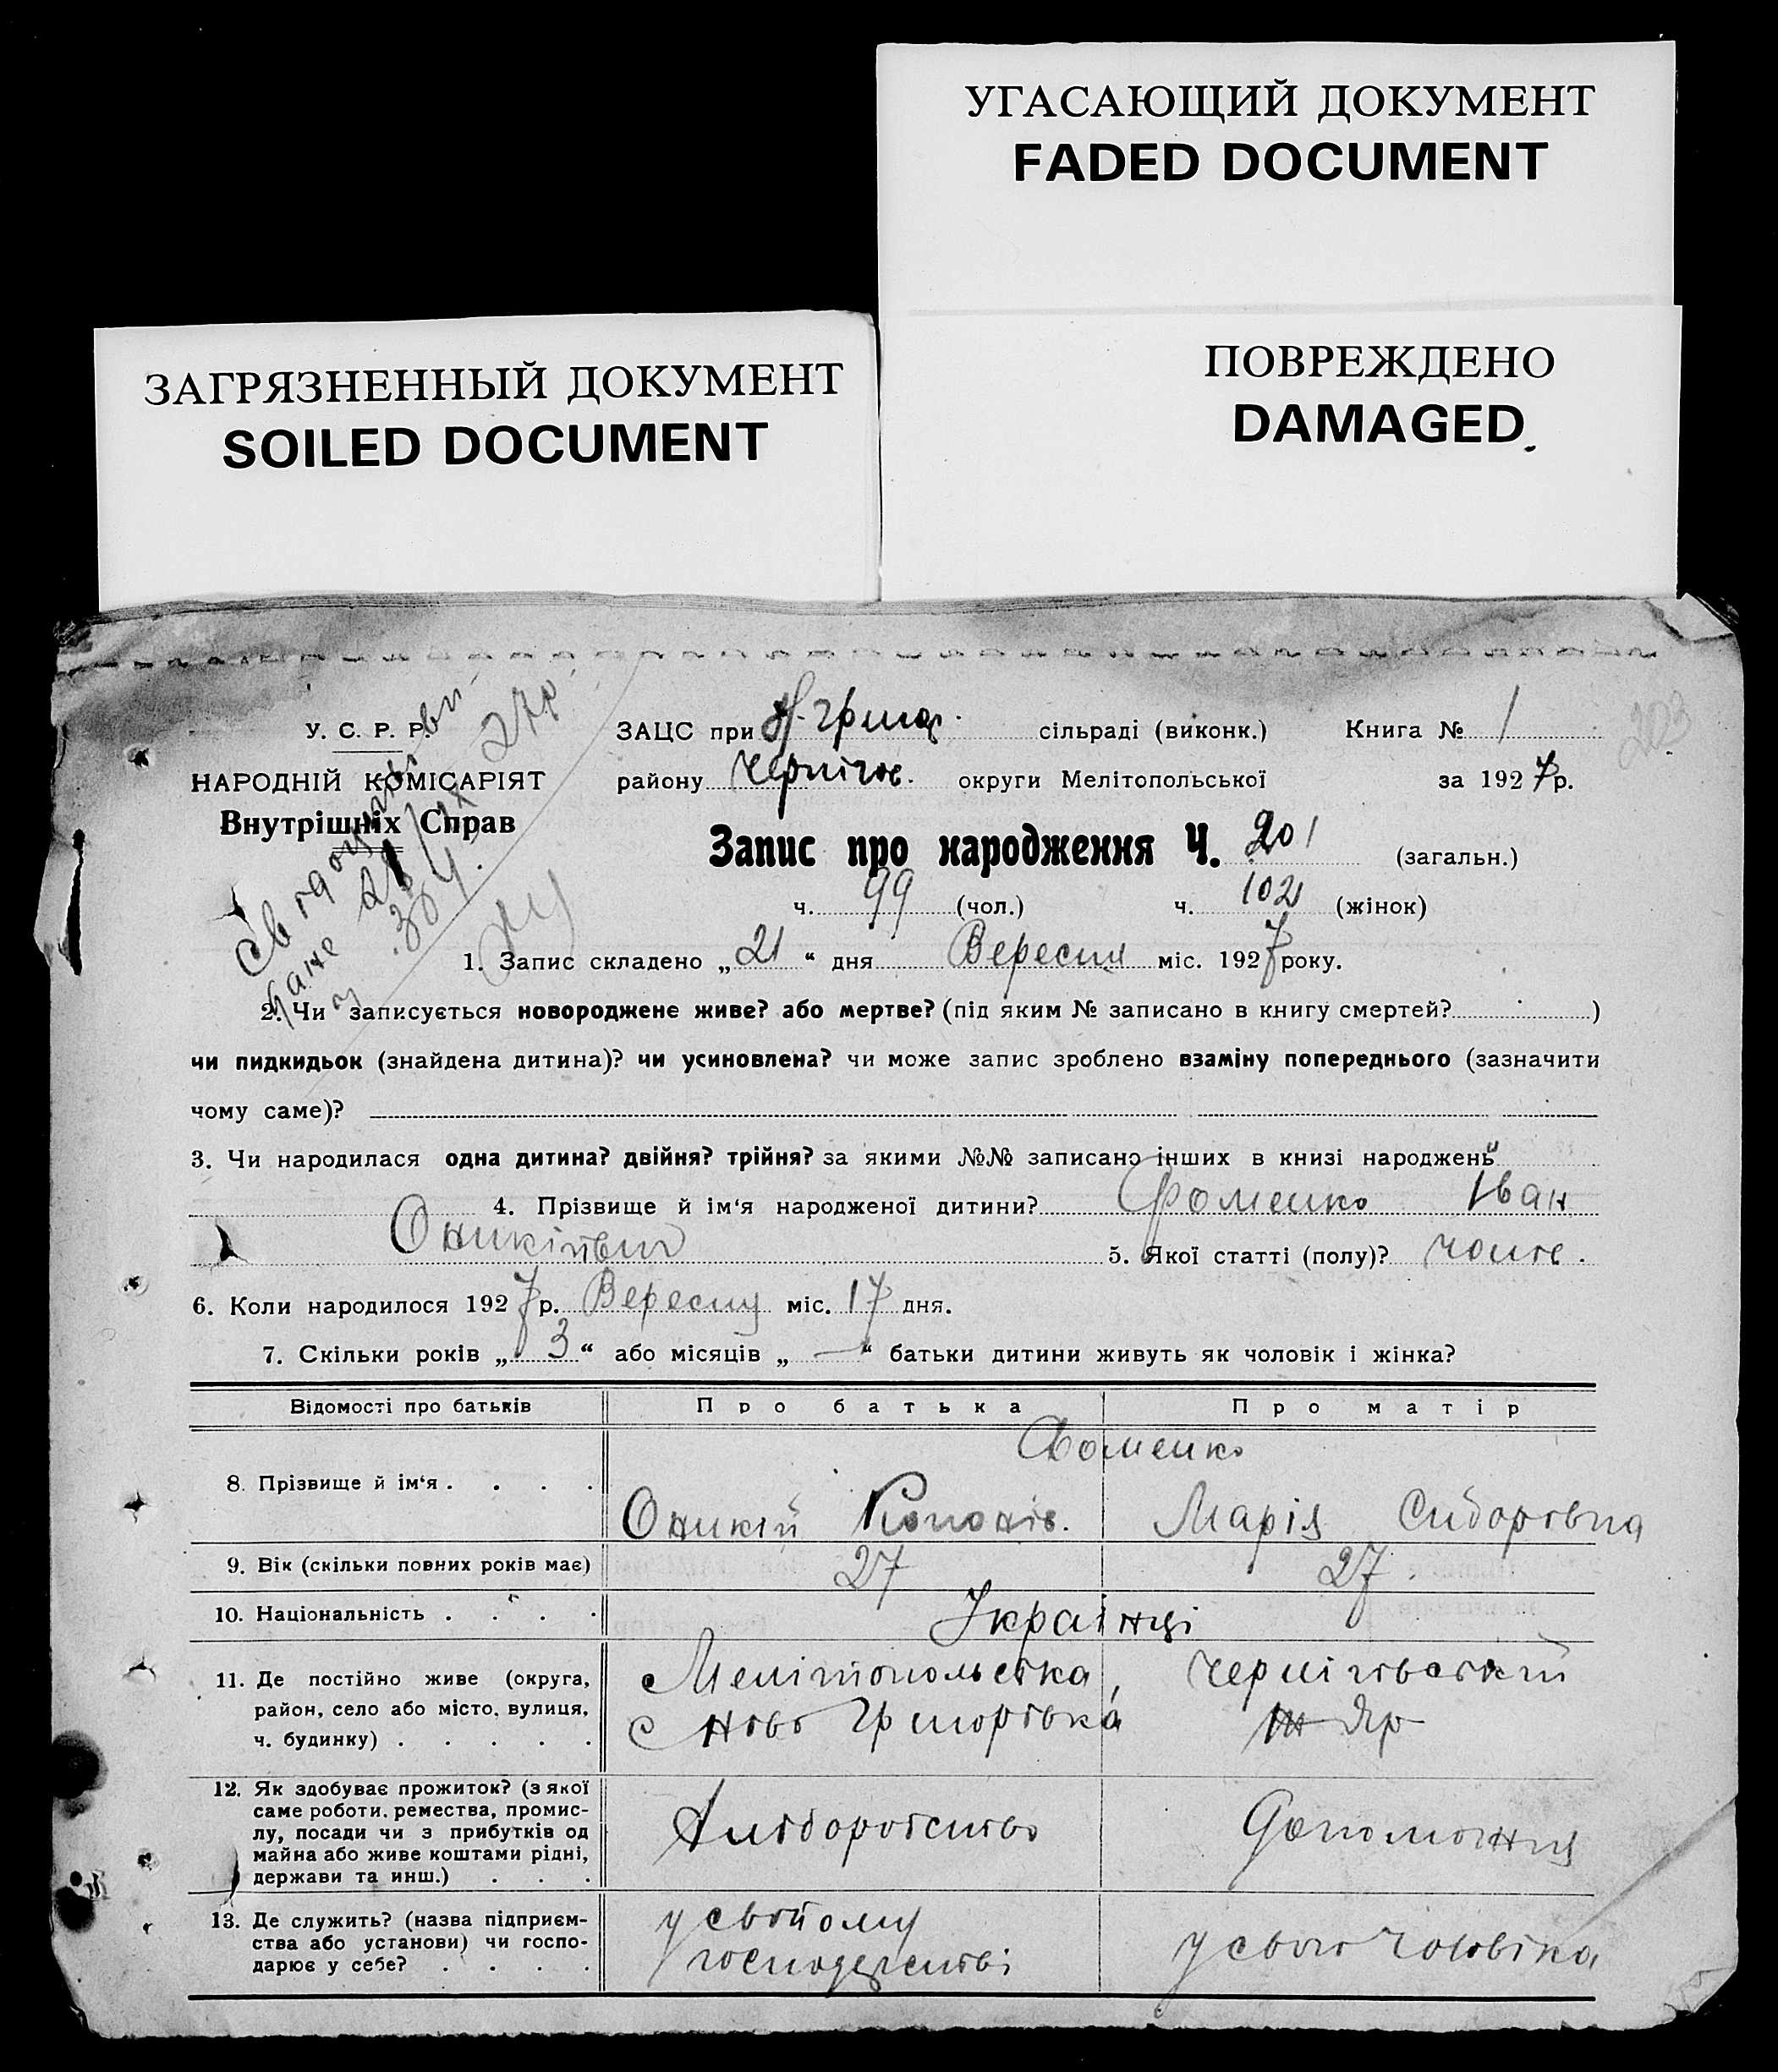 УГАСАЮЩИЙ ДОКУМЕНТ
FADED DOCUMENT
ПОВРЕЖДЕНО
DAMAGED
ЗАГРЯЗНЕННЫЙ ДОКУМЕНТ
SOILED DOCUMENT
У. С. Р. Р.
НАРОДНІЙ КОМІСАРІЯТ
Внутрішніх Справ
203
ЗАЦС при Н-Григ. сільраді (виконк.) Книга № 1
району Чернігів. округи Мелітопольської за 1927 р.
Запис про народження Ч. 201 (загальн.)
ч. 99 (чол.) ч. 102 (жінок)
1. Запис складено „21“ дня Вересня міс. 1927 року.
2. Чи записується новороджене живе? або мертве? (під яким № записано в книгу смертей? )
чи пидкидьок (знайдена дитина)? чи усиновлена? чи може запис зроблено взаміну попереднього (зазначити
чому саме)?
3. Чи народилася одна дитина? двійня? трійня? за якими №№ записано інших в книзі народжень
4. Прізвище й ім‘я народженої дитини? Фоменко Іван
Оникійвич 5. Якої статті (полу)? чолов.
6. Коли народилося 1927 р. Вересня міс. 17 дня.
7. Скільки років „3“ або місяців „—“ батьки дитини живуть як чоловік і жінка?
Відомості про батьків Про батька Про матір
Фоменко
8. Прізвище й ім‘я . . . . Оникій Кононів. Марія Сидоровна
9. Вік (скільки повних років має) 27 27
10. Національність . . . . Українці
11. Де постійно живе (округа, Мелітопольська, Чернігівський
район, село або місто, вулиця, с Ново Григорівка
ч. будинку) . . . . .
12. Як здобуває прожиток? (з якої
саме роботи, ремества, промис-
лу, посади чи з прибутків од Хліборобство Допоможня
майна або живе коштами рідні,
держави та инш.) . . .
13. Де служить? (назва підприєм- у свойому
ства або установи) чи госпо- господарстві у свого чоловіка
дарює у себе? . . . .